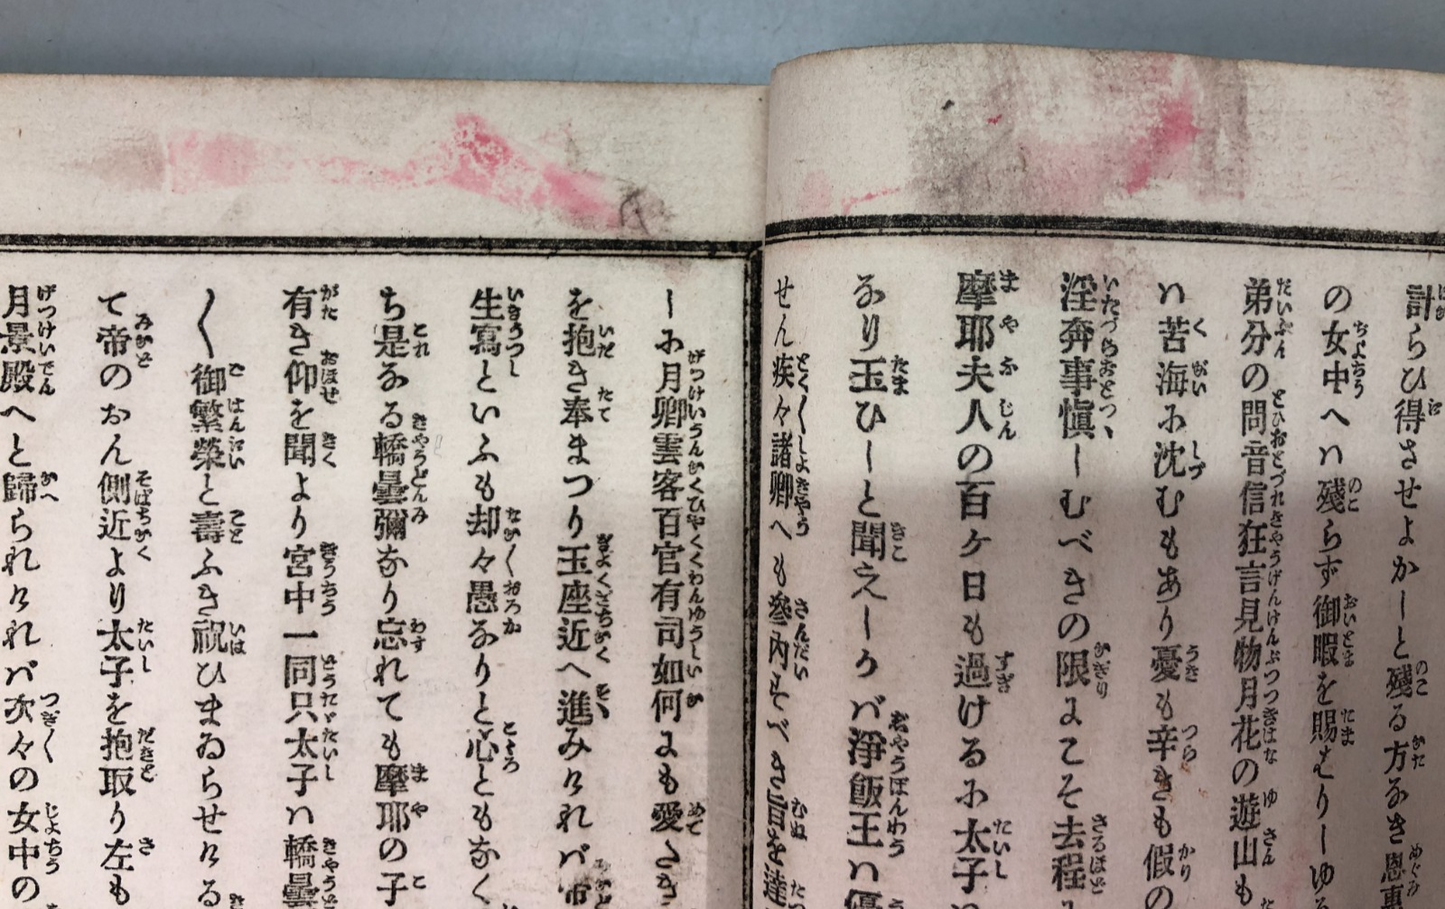 計らひ得させよかしと残る方なき恩恵
の女中へハ残らず御暇を賜はりしゆゑ
弟分の問音信狂言見物月花の遊山も
ハ苦海に沈むもあり憂も辛きも假の
淫奔事愼しむべきの限りよこそ去程
摩耶夫人の百ヶ日も過けるに太子
なり玉ひしと聞えしかバ淨飯王ハ優
せん疾々諸卿へも參内すべき旨を達
しに月卿雲客百官有司如何にも愛たき
を抱き奉まつり玉座近へ進みけれバ帝
生寫といふも却々愚なりと心ともなく
ち是なる轎曇彌なり忘れても摩耶の子
有き仰を聞より宮中一同只太子ハ轎曇
く御繁榮と壽ふき祝ひまゐらせける
て帝のおん側近より太子を抱取り左も
月景殿へと歸られけれバ次々の女中の